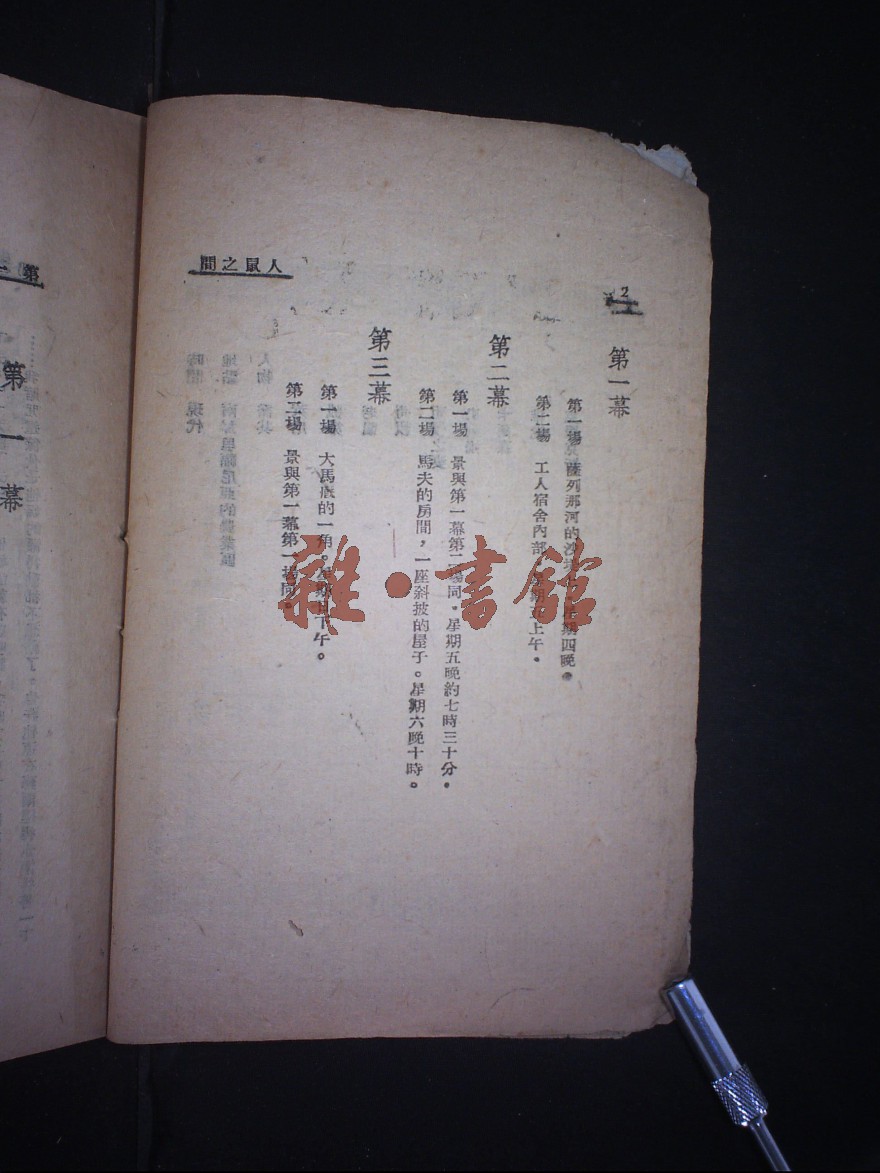 人鼠之間
2
第一幕
第一場 薩列那河的沙 期四晚。
第二場 工人宿舍內部 星期 上午。
第二幕
第一場 景與第一幕第二場同。星期五晚約七時三十分。
第二場 馬夫的房間，一座斜披的屋子。星期六晚十時。
第三幕
第一場 大馬廐的一角。星期日下午。
第二場 景與第一幕第一場同。
第一幕
雜·書館